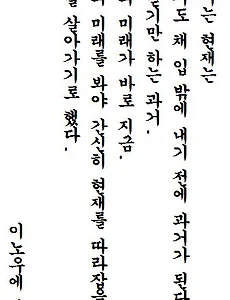 는 현재는
도 채 입 밖에 내기 전에 과거가 된다
기만 하는 과거.
미래가 바로 지금.
미래를 봐야 간신히 현재를 따라잡을
살아가기로 했다.
이노우에